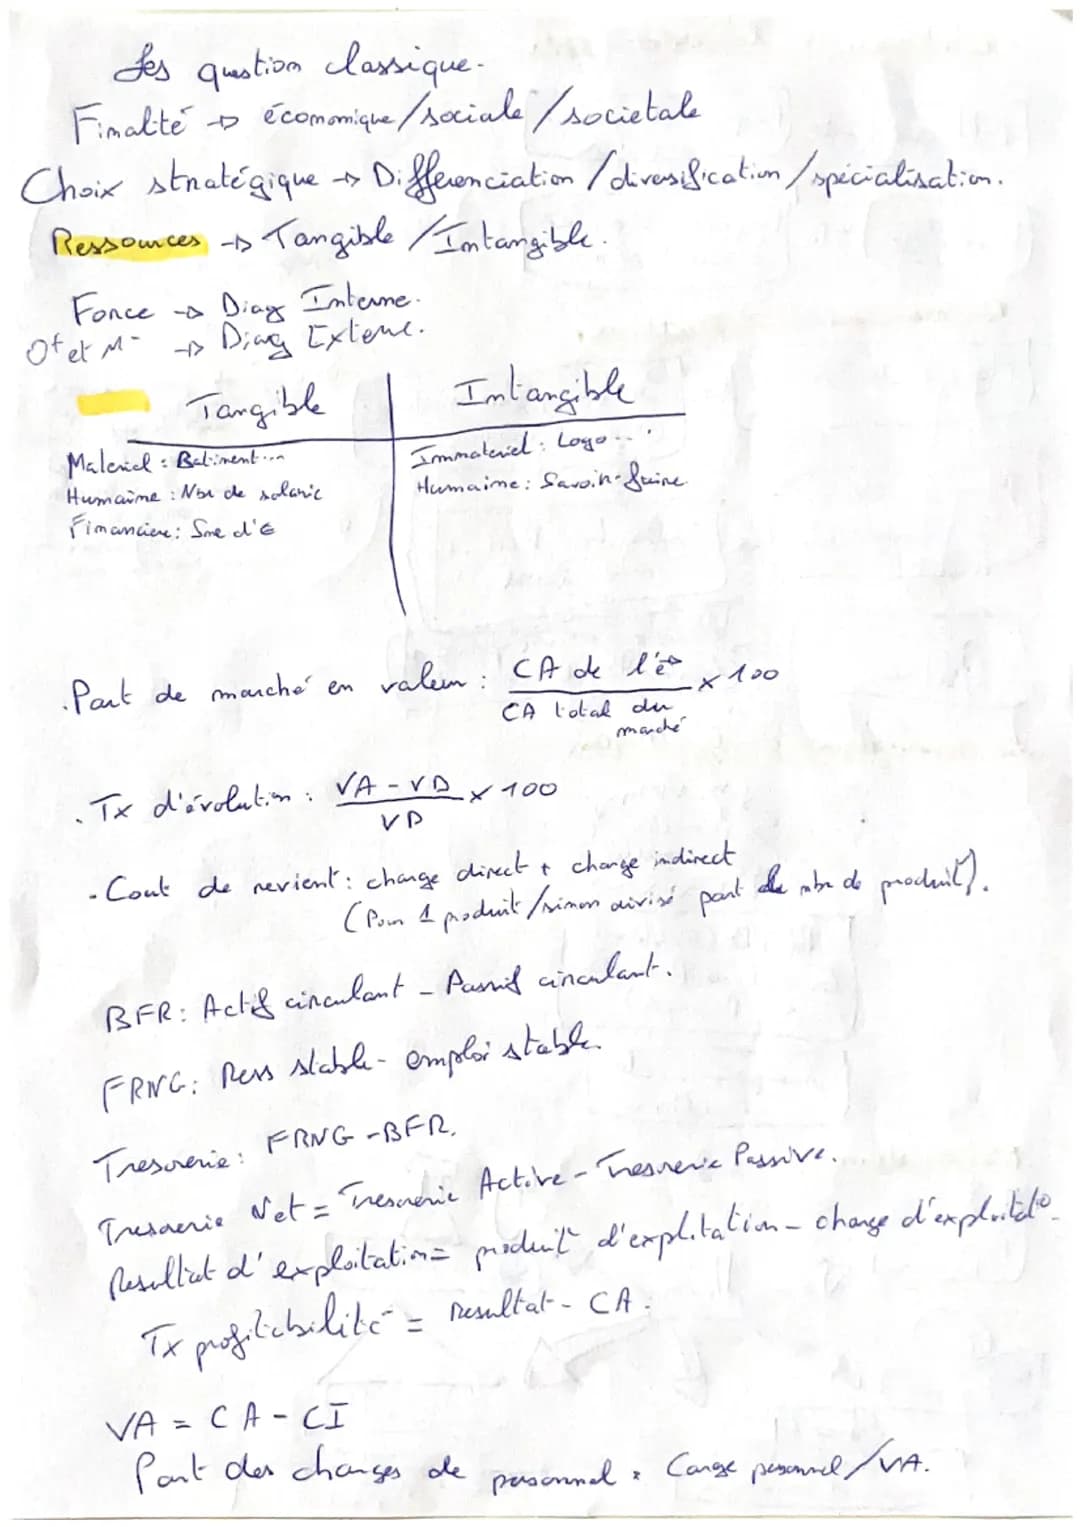 Les question classique.
Finalité → économique/sociale/societale
Choix stratégique → Differenciation/diversification/spécialisation.
Ressources → Tangible/Intangible.
Force → Diag Interne.
O+ et M- → Diag Externe.
Tangible Intangible
Materiel : Batiment... Immateriel : Logo...
Humaine : Nbr de salarié Humaine : Savoir-faire
Financiere : Sme d'€
. Part de marché en valeur : CA de l'e° × 100
CA total du
marché
. Tx d'évolution : VA - VD × 100
VD
- Cout de revient : charge direct + charge indirect
(Pour 1 produit/sinon divisé part le nbr de produit).
BFR : Actif circulant - Passif circulant.
FRNG : Ress stable - emploi stable.
Tresorerie : FRNG - BFR.
Tresorerie Net = Tresorerie Active - Tresorerie Passive.
Resultat d'exploitation = produit d'explitation - charge d'exploitat°.
Tx profitabilité = resultat - CA.
VA = CA - CI
Part des charges de personnel = Carge personnel/VA.